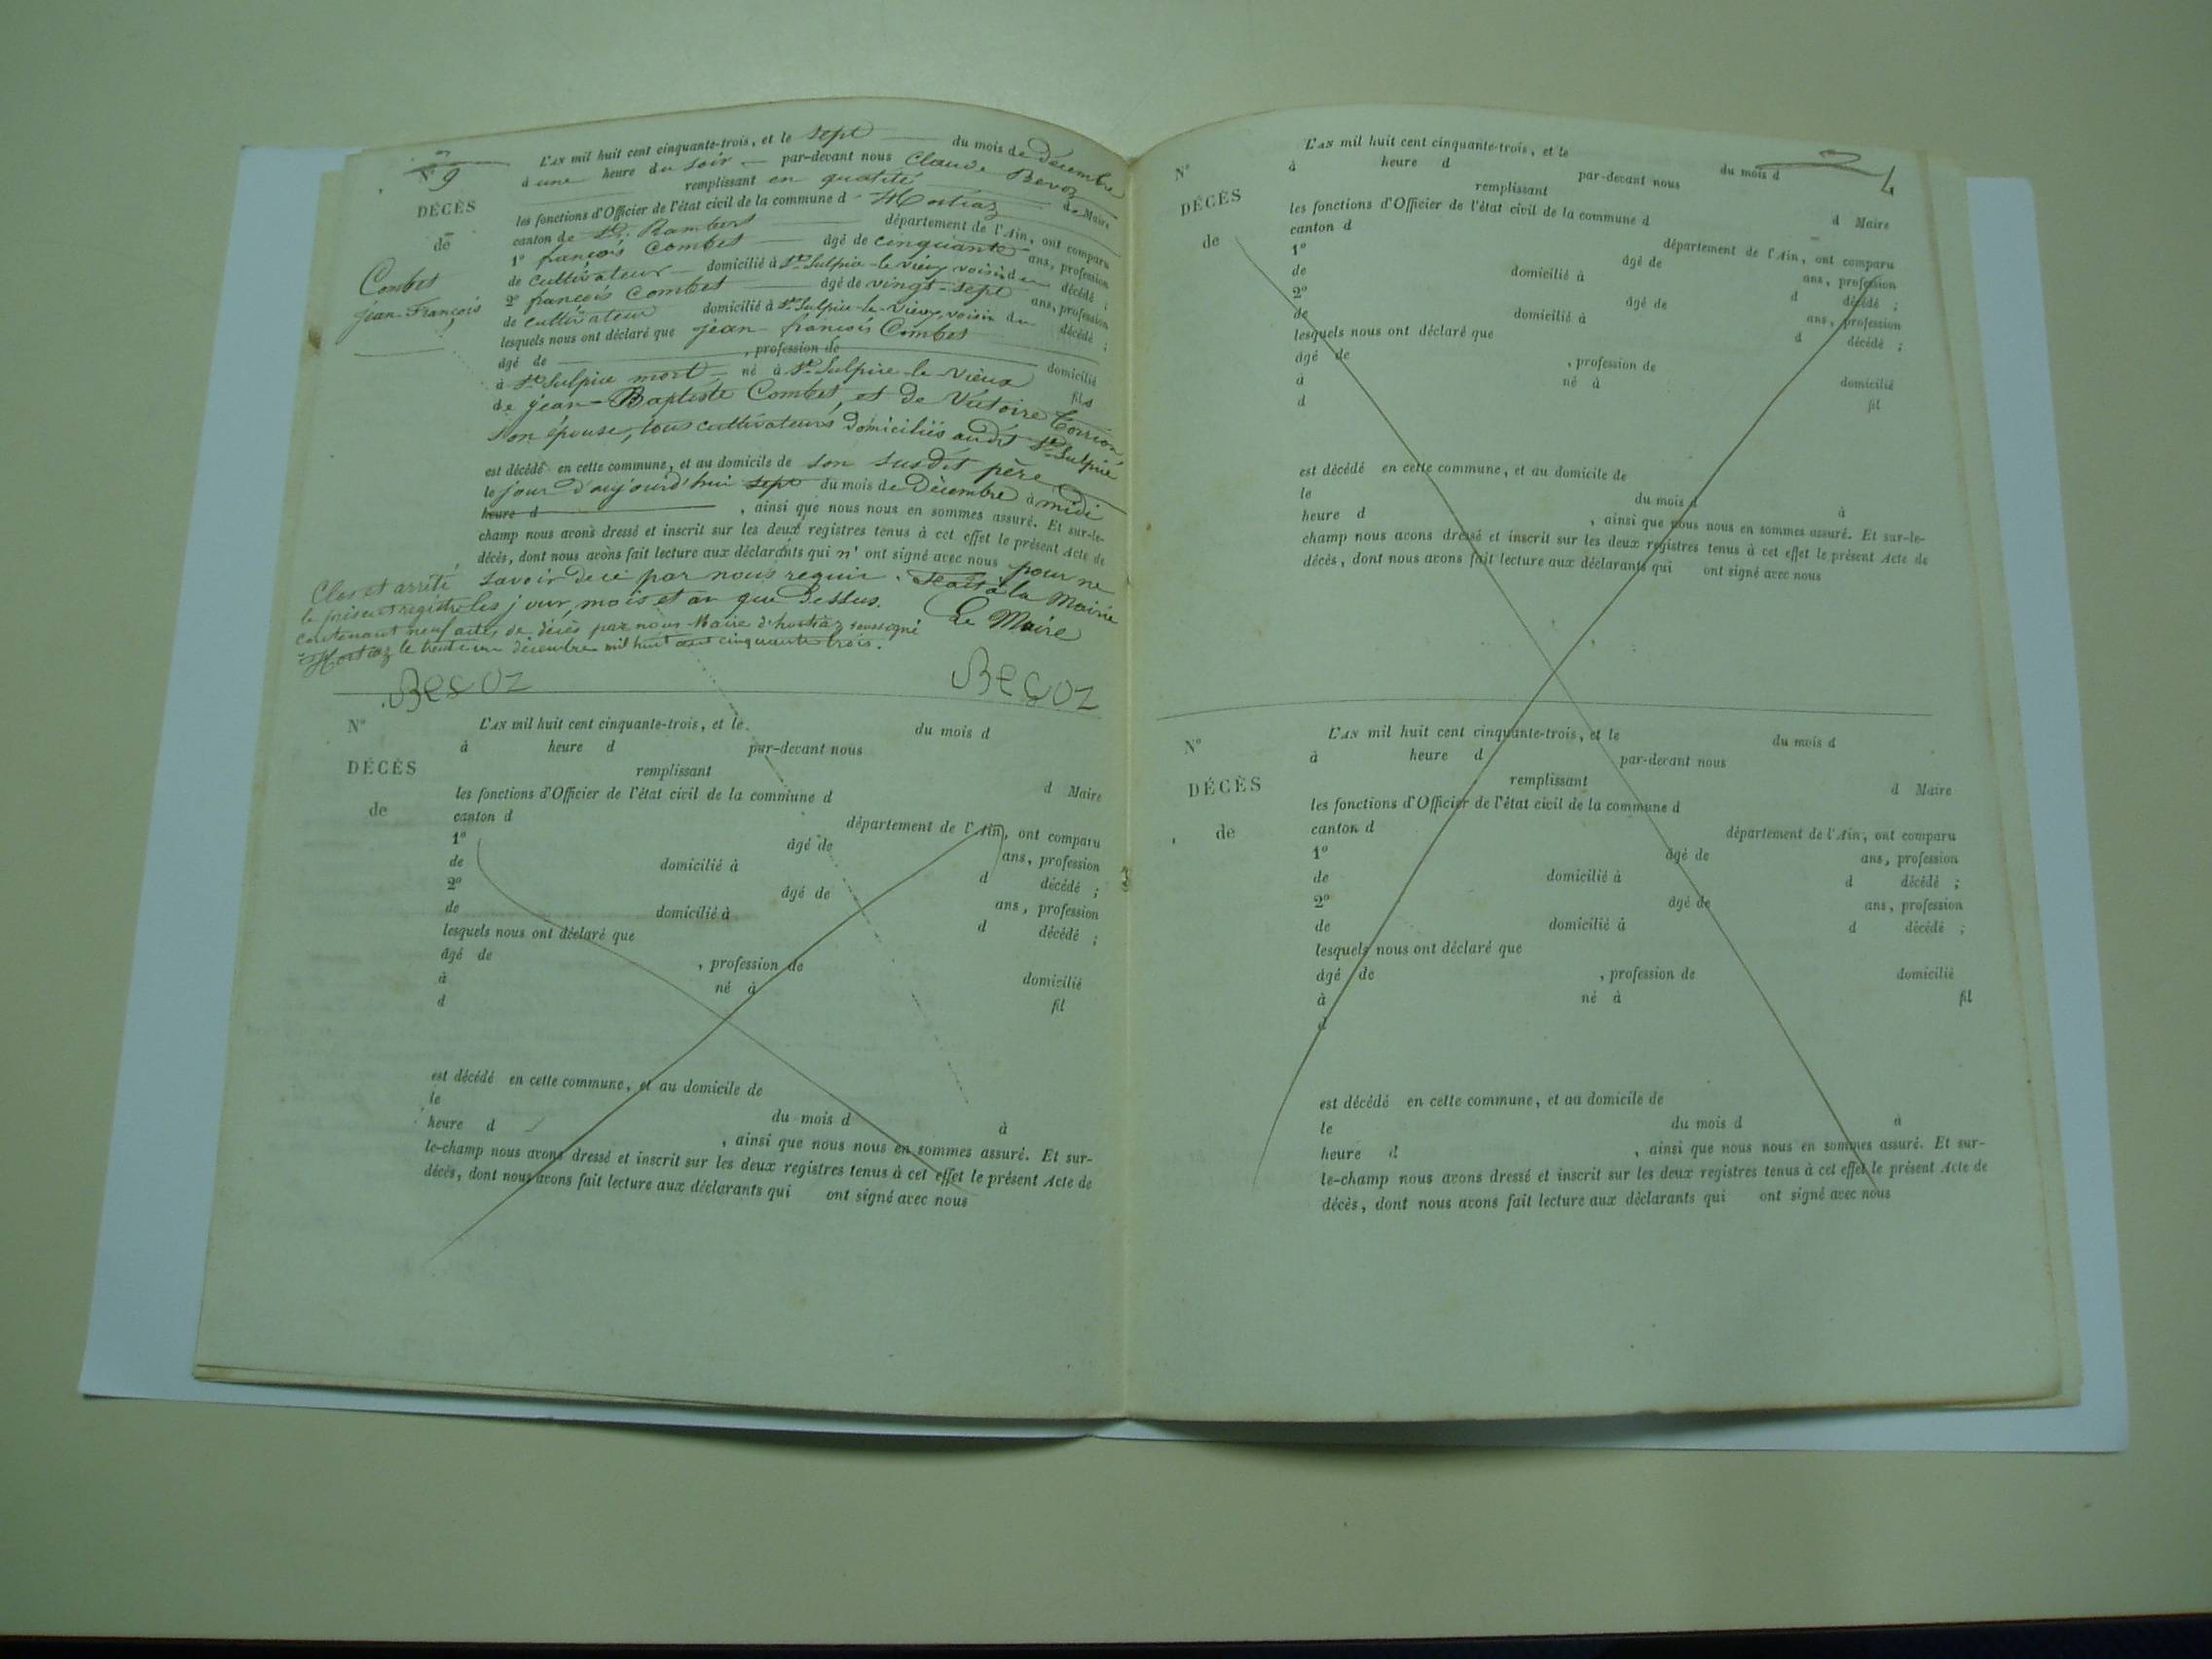 N° 9
DÉCÈS
de
Combet
jean-François
L'AN mil huit cent cinquante-trois, et le sept du mois de Décembre
à une heure du soir par-devant nous Claude
remplissant en qualité de Maire
les fonctions d'Officier de l'état civil de la commune d'Hostiaz
canton de St. Rambert département de l'Ain, ont comparu
1° françois Combet âgé de cinquante ans, profession
de cultivateur domicilié à St Sulpice-le-vieux voisin du décédé ;
2° françois Combet âgé de vingt-sept ans, profession
de cultivateur domicilié à St Sulpice-le-Vieux, voisin du décédé ;
lesquels nous ont déclaré que jean-françois Combet
âgé de , profession de domicilié
à St Sulpice mort né à St Sulpice-le-Vieux fils
de jean-Baptiste Combet, et de Victoire
son épouse, tous cultivateurs domiciliés audit St Sulpice,
est décédé en cette commune, et au domicile de son susdit père
le jour d'aujourd'hui sept du mois de Décembre à midi
heure d , ainsi que nous nous en sommes assuré. Et sur-le-
champ nous avons dressé et inscrit sur les deux registres tenus à cet effet le présent Acte de
décès, dont nous avons fait lecture aux déclarants qui n'ont signé avec nous pour ne
savoir de ce par nous requis. Fait à la Mairie
les jour, mois et an que dessus. Le Maire
Clos et arrêté
le présent registre
contenant neuf actes de décès par nous Maire d'hostiaz soussigné
Hostiaz le trente un décembre mil huit cent cinquante trois.
N°
DÉCÈS
de
L'AN mil huit cent cinquante-trois, et le du mois d
à heure d par-devant nous
remplissant d Maire
les fonctions d'Officier de l'état civil de la commune d
canton d département de l'Ain, ont comparu
1° âgé de ans, profession
de domicilié à d décédé ;
2° âgé de ans, profession
de domicilié à d décédé ;
lesquels nous ont déclaré que
âgé de , profession de domicilié
à né à fil
d
est décédé en cette commune, et au domicile de
le du mois d à
heure d , ainsi que nous nous en sommes assuré. Et sur-
le-champ nous avons dressé et inscrit sur les deux registres tenus à cet effet le présent Acte de
décès, dont nous avons fait lecture aux déclarants qui ont signé avec nous
4
N°
DÉCÈS
de
L'AN mil huit cent cinquante-trois, et le du mois d
à heure d par-devant nous
remplissant d Maire
les fonctions d'Officier de l'état civil de la commune d
canton d département de l'Ain, ont comparu
1° âgé de ans, profession
de domicilié à d décédé ;
2° âgé de ans, profession
de domicilié à d décédé ;
lesquels nous ont déclaré que
âgé de , profession de domicilié
à né à fil
d
est décédé en cette commune, et au domicile de
le du mois d à
heure d , ainsi que nous nous en sommes assuré. Et sur-le-
champ nous avons dressé et inscrit sur les deux registres tenus à cet effet le présent Acte de
décès, dont nous avons fait lecture aux déclarants qui ont signé avec nous
N°
DÉCÈS
de
L'AN mil huit cent cinquante-trois, et le du mois d
à heure d par-devant nous
remplissant d Maire
les fonctions d'Officier de l'état civil de la commune d
canton d département de l'Ain, ont comparu
1° âgé de ans, profession
de domicilié à d décédé ;
2° âgé de ans, profession
de domicilié à d décédé ;
lesquels nous ont déclaré que
âgé de , profession de domicilié
à né à fil
d
est décédé en cette commune, et au domicile de
le du mois d à
heure d , ainsi que nous nous en sommes assuré. Et sur-
le-champ nous avons dressé et inscrit sur les deux registres tenus à cet effet le présent Acte de
décès, dont nous avons fait lecture aux déclarants qui ont signé avec nous